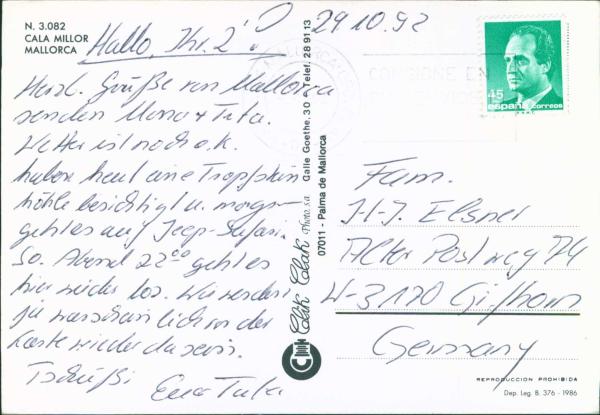 N. 3.082
CALA MILLOR
MALLORCA
29.10.92
Hallo, Ihr 2!
Herzl. Grüße von Mallorca
senden Mona + Tuta.
Wetter ist noch o.k.
haben heut eine Tropfstein
höhle besichtigt u. morgen
geht es auf Jeep-Safari.
So. Abend 22⁰⁰ geht es
hier wieder los. Wir werden
ja wahrscheinlich vor der
Karte wieder da sein.
Tschüßi
Eure Tuta
Clik Clak Photo, s.a. Calle Goethe, 30 Telef. 28 91 13
07011 - Palma de Mallorca
CONSIGNE EN
45
españa correos
Fam.
H-J. Elsner
Alter Postweg 74
W-3170 Gifhorn
Germany
REPRODUCCION PROHIBIDA
Dep. Leg. B. 376 - 1986